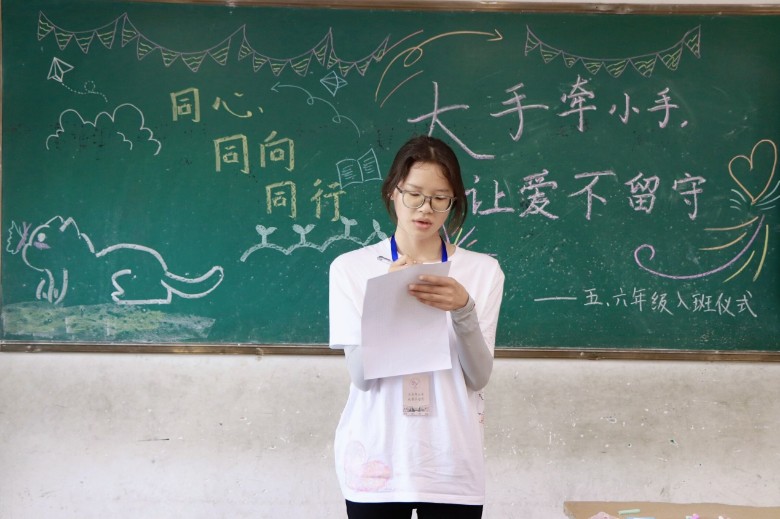 同心、
同向
同行
大手牵小手，
让爱不留守
——五、六年级入班仪式